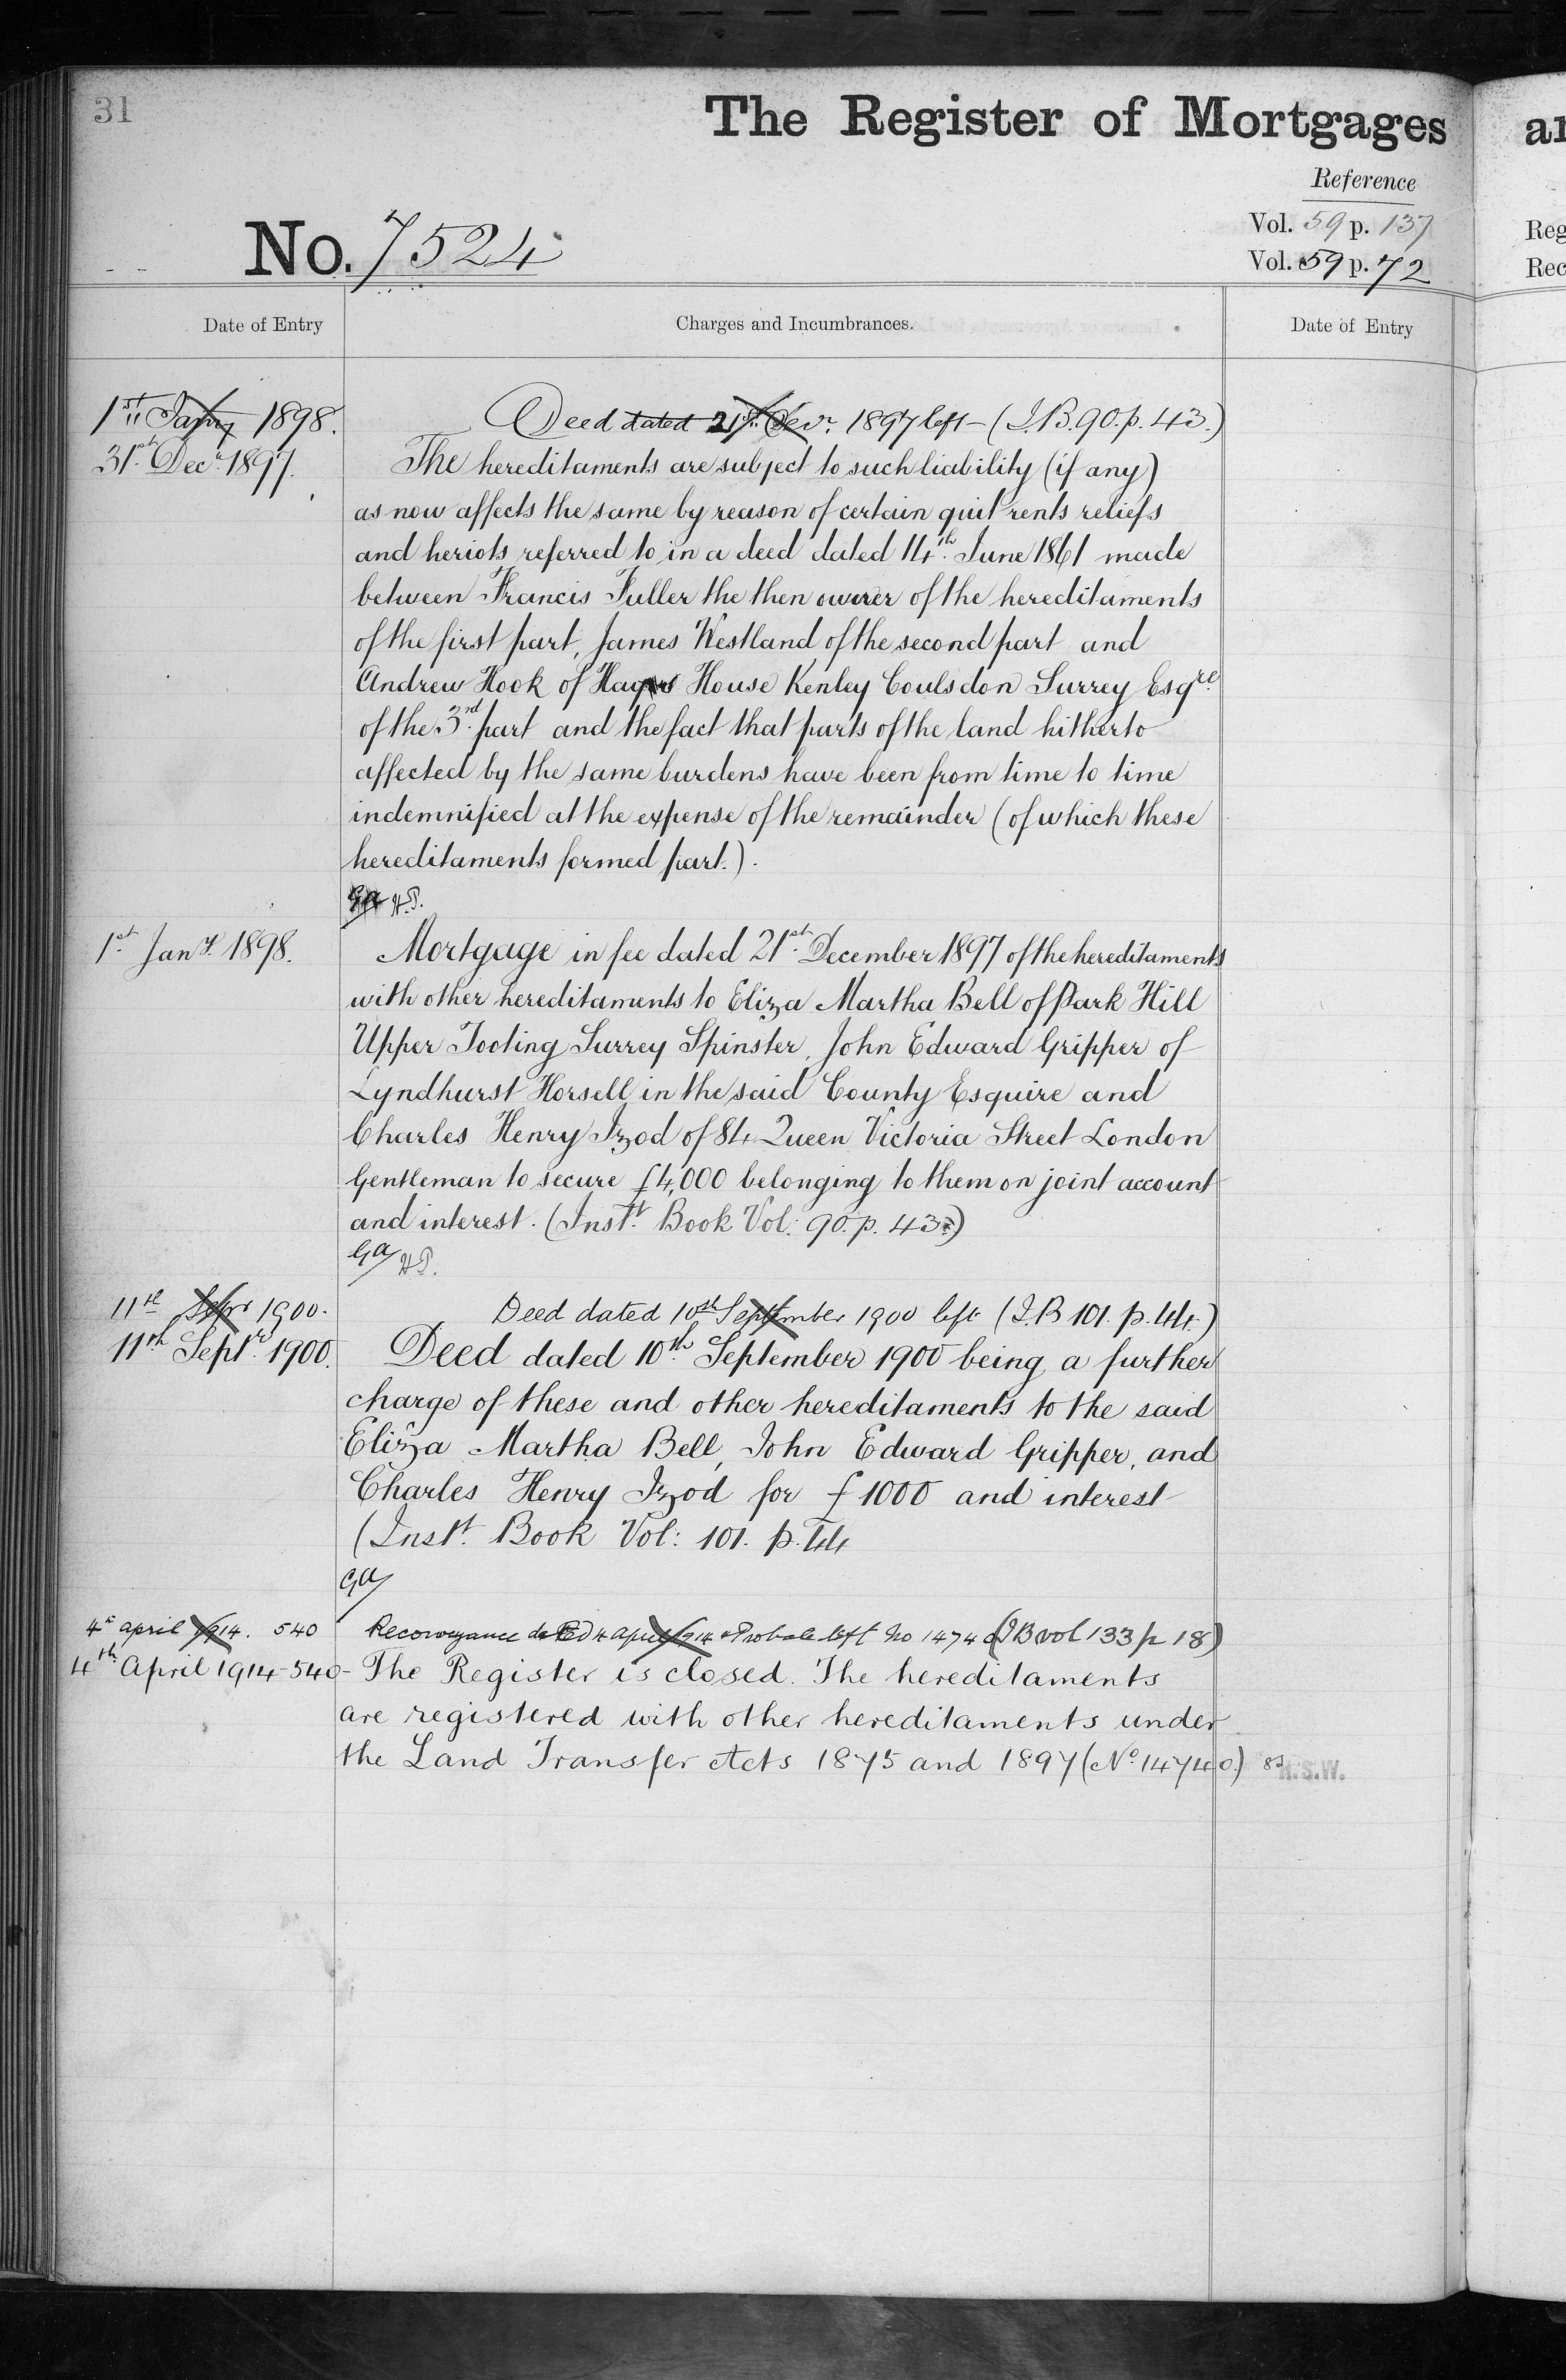 31
The Register of Mortgages
Reference
No. 7524
Vol. 59 p. 137
Vol. 59 p. 72
Reg
Rec
Date of Entry
Charges and Incumbrances.
Date of Entry
1st Jany 1898.
Deed dated 21st Decr. 1897 left – (I.B. 90. p. 43.)
31st Decr. 1897.
The hereditaments are subject to such liability (if any)
as now affects the same by reason of certain quit rents reliefs
and heriots referred to in a deed dated 14th. June 1861 made
between Francis Fuller the then owner of the hereditaments
of the first part, James Westland of the second part and
Andrew Hook of House Kenley Coulsdon Surrey Esqre.
of the 3rd. part and the fact that parts of the land hitherto
affected by the same burdens have been from time to time
indemnified at the expense of the remainder (of which these
hereditaments formed part.).
1st Jany. 1898.
Mortgage in fee dated 21st. December 1897 of the hereditaments
with other hereditaments to Eliza Martha Bell of Park Hill
Upper Tooting Surrey Spinster, John Edward Gripper of
Lyndhurst Horsell in the said County Esquire and
Charles Henry Izod of 84 Queen Victoria Street London
Gentleman to secure £4,000 belonging to them on joint account
and interest. (Instt. Book Vol: 90. p. 43.)
GA
11th Sepr 1900.
Deed dated 10th September 1900 left (I.B 101. p. 44.)
11th Septr. 1900.
Deed dated 10th. September 1900 being a further
charge of these and other hereditaments to the said
Eliza Martha Bell, John Edward Gripper, and
Charles Henry Izod for £1000 and interest
(Instt. Book Vol: 101. p. 44
GA
4th april 1914. 540
Reconveyance dated 4 april 1914 & Probate left No 14740 (IB vol 133 p 18)
4th. April 1914 - 540 -
The Register is closed. The hereditaments
are registered with other hereditaments under
the Land Transfer Acts 1875 and 1897 (No. 14740.)
H.S.W.